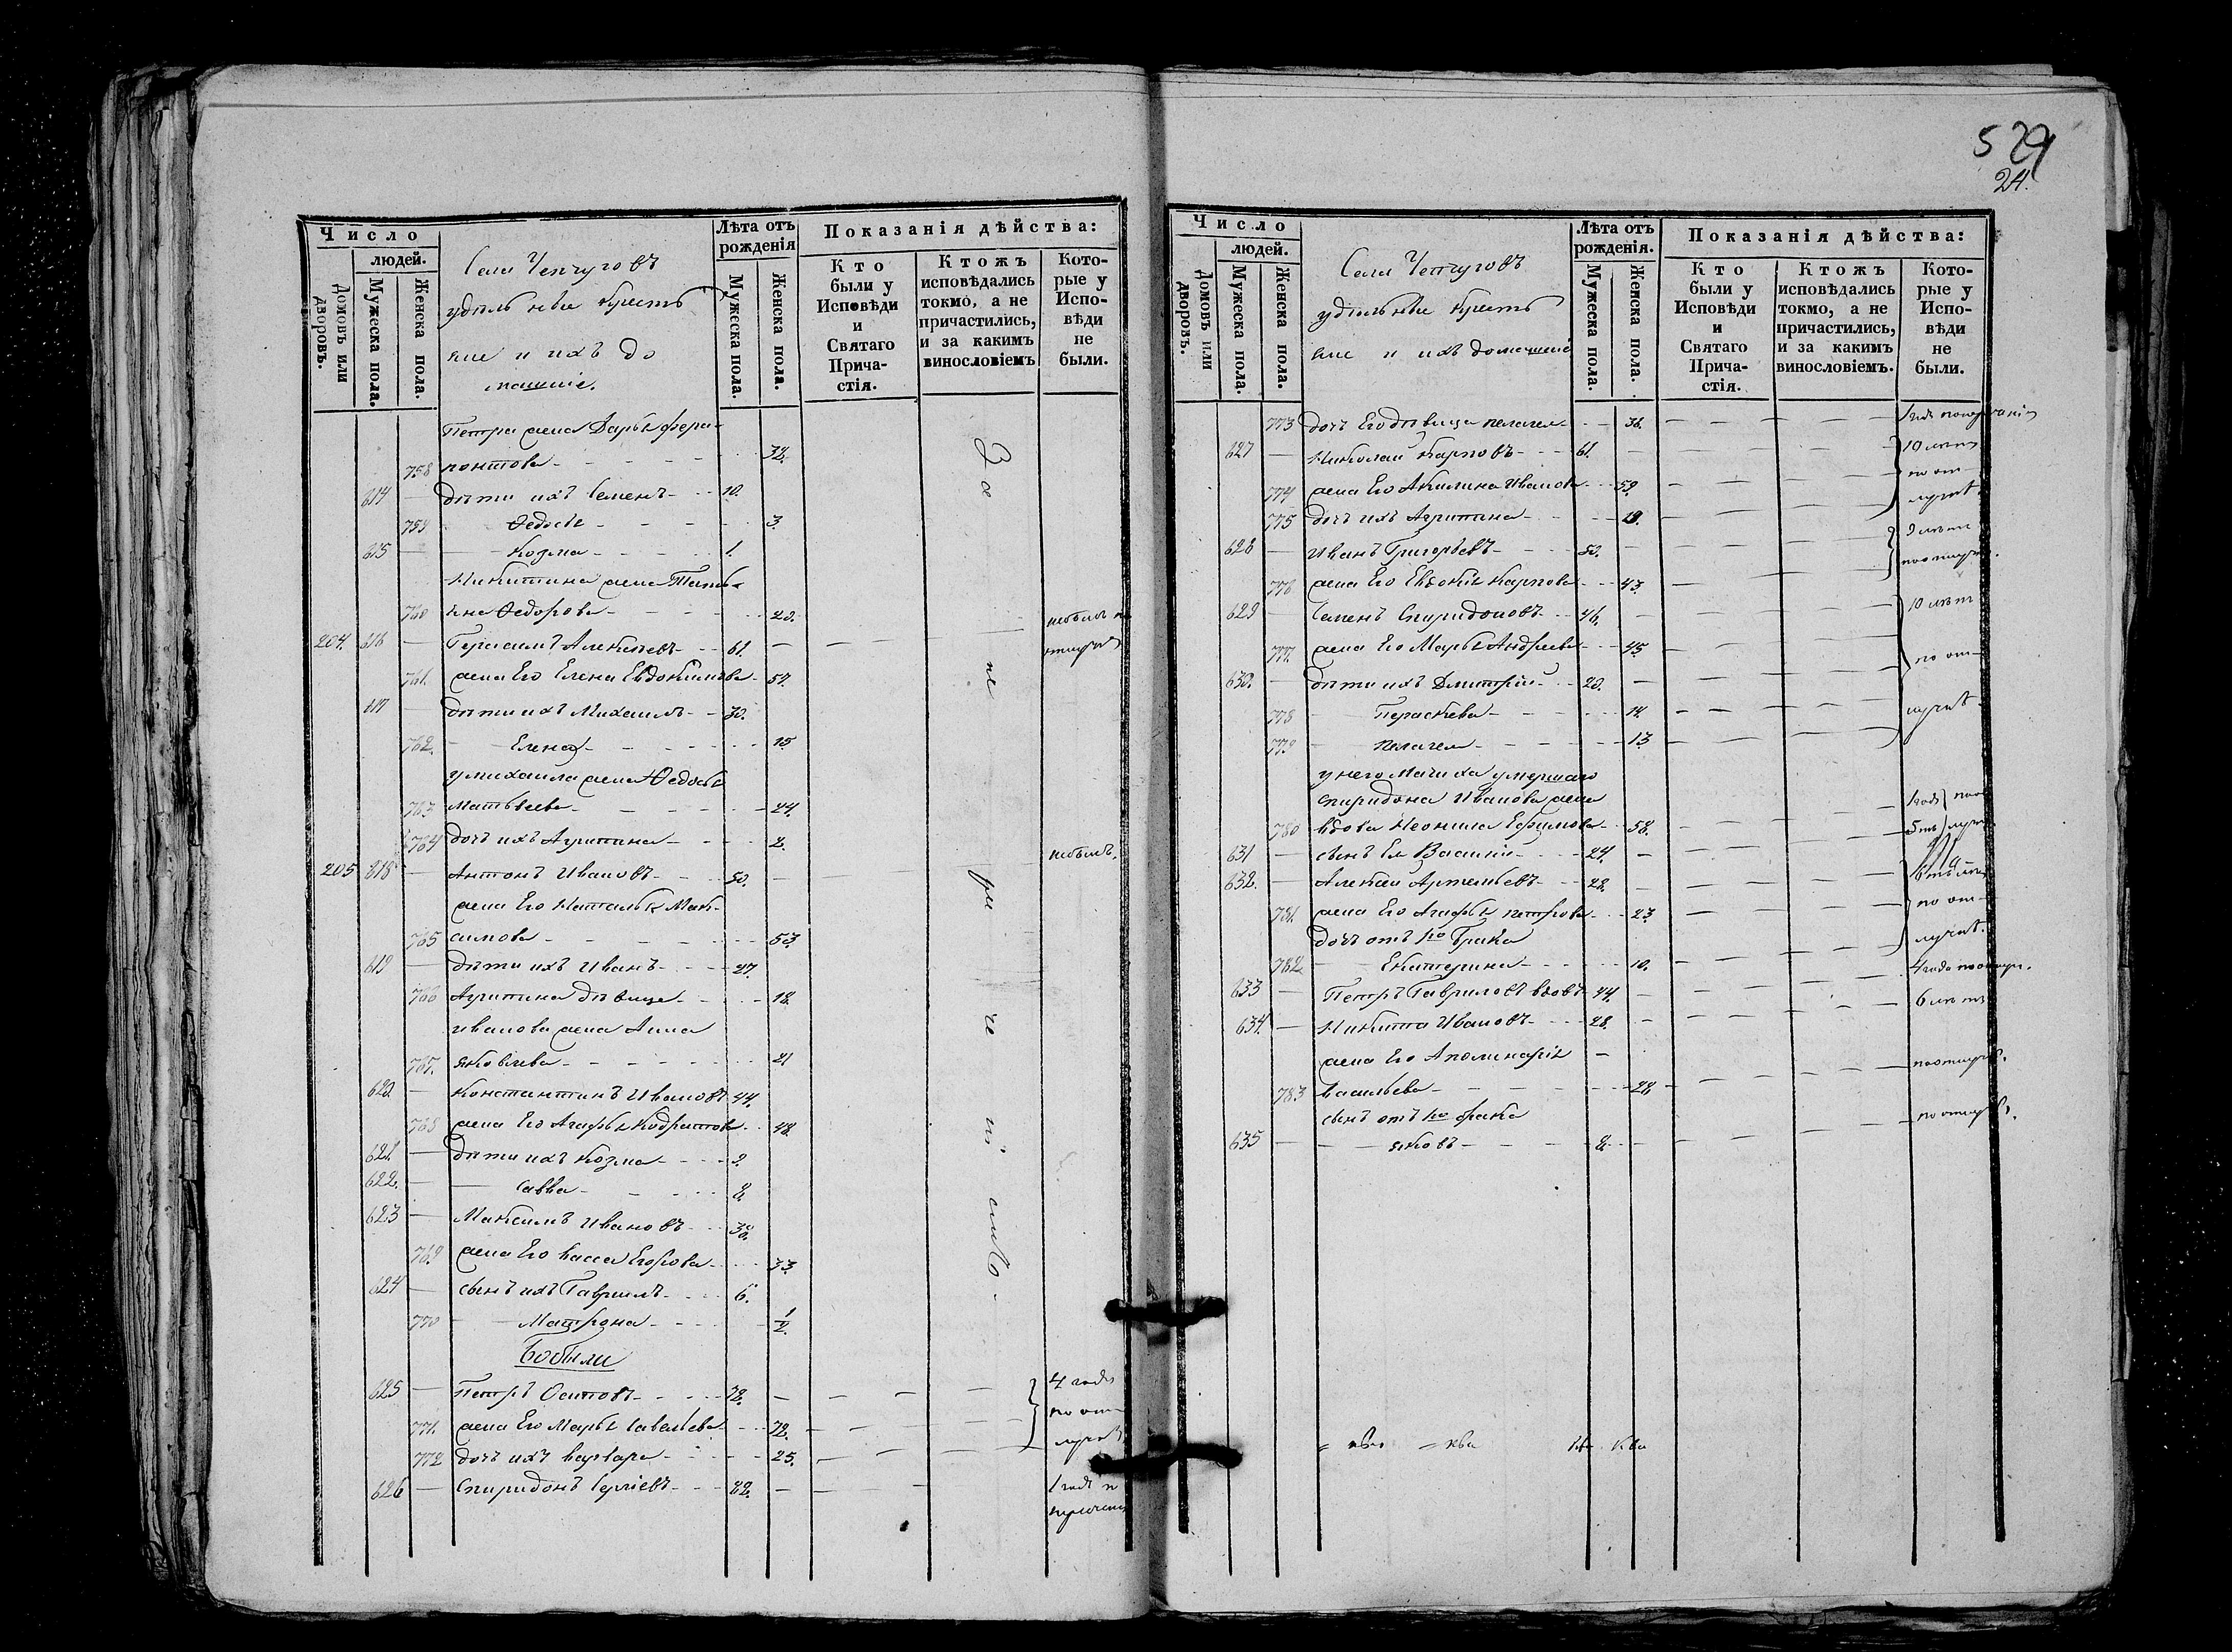 Число
людей.
Домовъ или дворовъ.
Мужеска пола.
Женска пола.
Села Чепчуговъ
удѣльные кресть
яне и ихъ до
машніе.
Лѣта отъ рожденія
Мужеска пола.
Женска пола.
Показанія дѣйства:
Кто были у Исповѣди и Святаго Прича-стія.
Ктожъ исповѣдались токмо, а не причастились, и за какимъ винословіемъ
Кото-рые у Испо-вѣди не были.
Петра жена Дарья фера-
758 понтова - 32.
614 дѣти ихъ Семенъ - 10.
759 Ѳедосья - 3.
615 Козма - 1.
Никитина жена Татья-
760 яна Ѳедорова - 20.
204. 616 Герасимъ Алексѣевъ - 61.
761. жена Его Елена Евдокимова - 57.
617 дѣти ихъ Михаилъ - 30.
762. Елена - 15
у михаила жена Ѳедосья
763 матвѣева - 24.
764 дочь ихъ Агрипина - 2.
205 618 Антонъ Ивановъ - 50.
жена Его Наталья Мак-
765 симова - 53.
619 дѣти ихъ Иванъ - 27.
766 Агрипина дѣвица - 18.
иванова жена Анна
767. яковлева - 21
620. Константинъ Ивановъ 44.
768 жена Его Агафья Кодратова - 48.
621. дѣти ихъ Козма - 9.
622. Савва - 8.
623 Максимъ Ивановъ - 38.
769 жена Его васса Егорова - 33.
624 сынъ ихъ Гавриилъ - 6.
770 Матрона - 1/2.
Бобыли
625 Петръ Осиповъ - 72.
4 года
771. жена Его Марья Савельева - 72.
по от-
лучкѣ
772 дочь ихъ варвара - 25.
626 Спиридонъ Сергіевъ - 82.
1 годъ
За не при че ні емъ
529
24.
Число
людей.
Домовъ или дворовъ.
Мужеска пола.
Женска пола.
Села Чепчуговъ
удѣльные кресть
яне и ихъ домашніе
Лѣта отъ рожденія.
Мужеска пола.
Женска пола.
Показанія дѣйства:
Кто были у Исповѣди и Святаго Прича-стія.
Ктожъ исповѣдались токмо, а не причастились, и за какимъ винословіемъ.
Кото-рые у Испо-вѣди не были.
773 дочь Его дѣвица пелагея - 36.
1 годъ
627 Николай Карповъ - 61.
10 лѣтъ
774 жена Его Акилина Иванова - 59.
по от-
лучкѣ
775 дочь ихъ Агрипина - 19.
628 Иванъ Григорьевъ - 50.
9 лѣтъ
776 жена Его Евдокія Карпова - 43.
по отлучкѣ.
629 Семенъ Спиридоновъ - 46.
10 лѣтъ
777. жена Его Марья Андреева - 45.
по от-
630. дѣти ихъ Дмитрій - 20.
778 Параскева - 14.
лучкѣ
779 пелагея - 13
у него Мачиха умершаго
спиридона Иванова жена
780 вдова Неонила Ефимова - 58.
631 сынъ Ея Василій - 24.
632. Алексѣй Артемьевъ - 28.
781. жена Его Агафья петрова - 23
по от-
дочь отъ 1го брака
лучкѣ.
782. Екатерина - 10.
633 Петръ Гавриловъ вдовъ - 44.
4 года по отлуч.
634. Никита Ивановъ - 28.
6 лѣтъ
жена Его Аполинарія
783 васильева - 28.
по отлучкѣ.
сынъ отъ 1го брака
635 яковъ - 8.
по отлучкѣ.